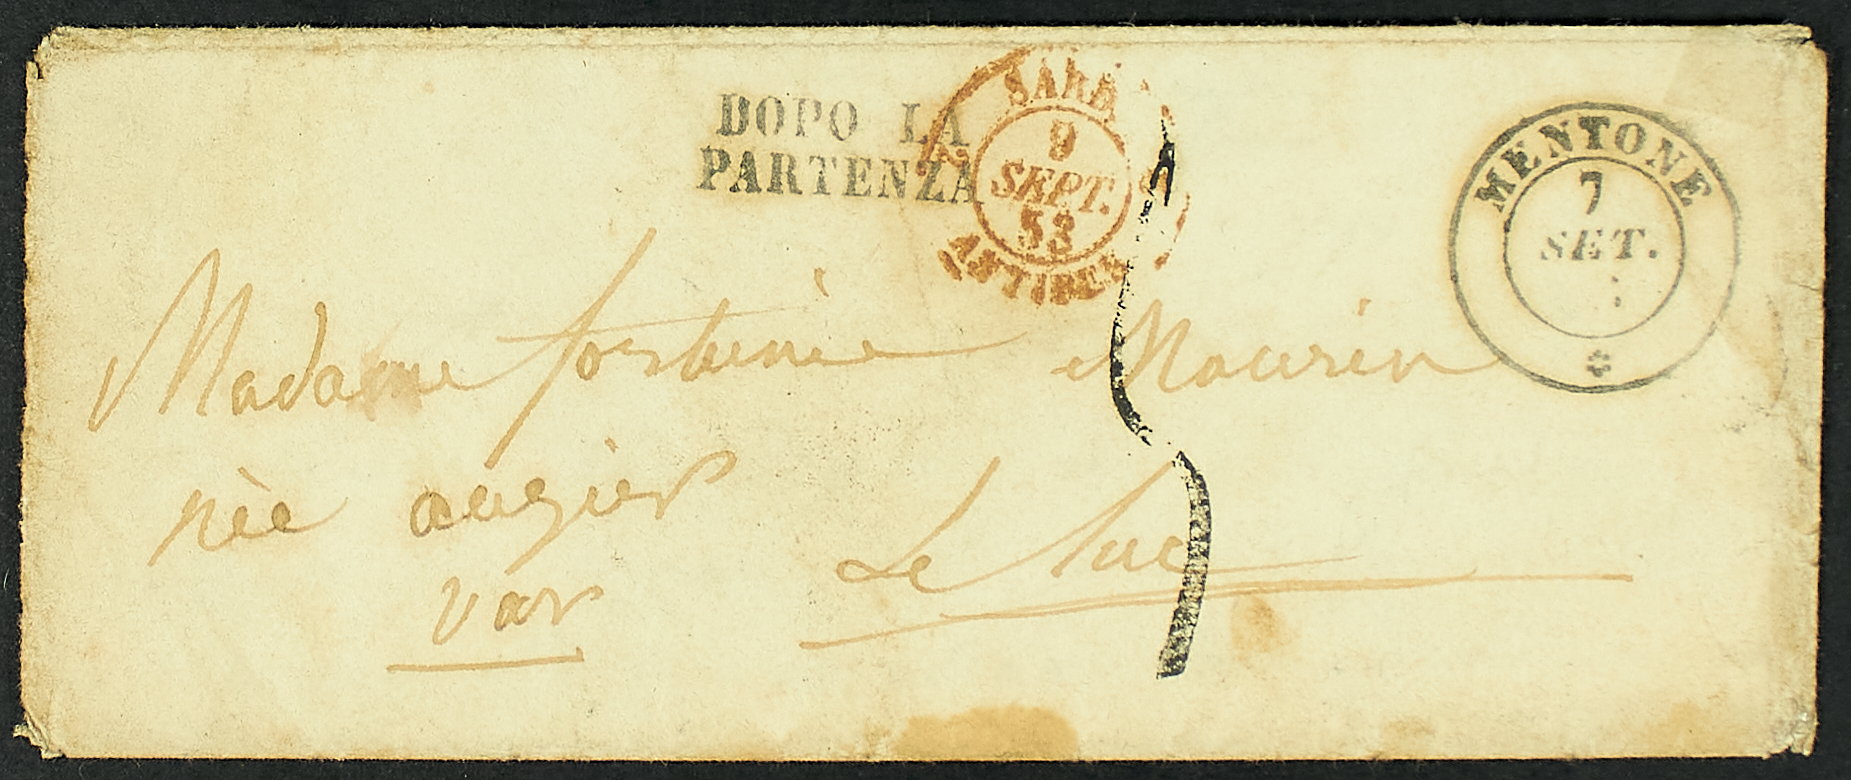 DOPO LA
PARTENZA
SARD.
9
SEPT.
53
ANTIBES
MENTONE
7
SET.
Madame fortunée Maurin
née augier
Le Luc
var